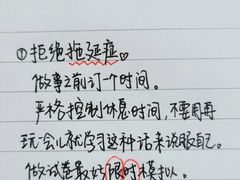 ①拒绝拖延症♡
做事之前订一个时间。
严格控制休息时间，不要用再
玩一会儿就学习这种话来说服自己。
做试卷最好限时模拟。